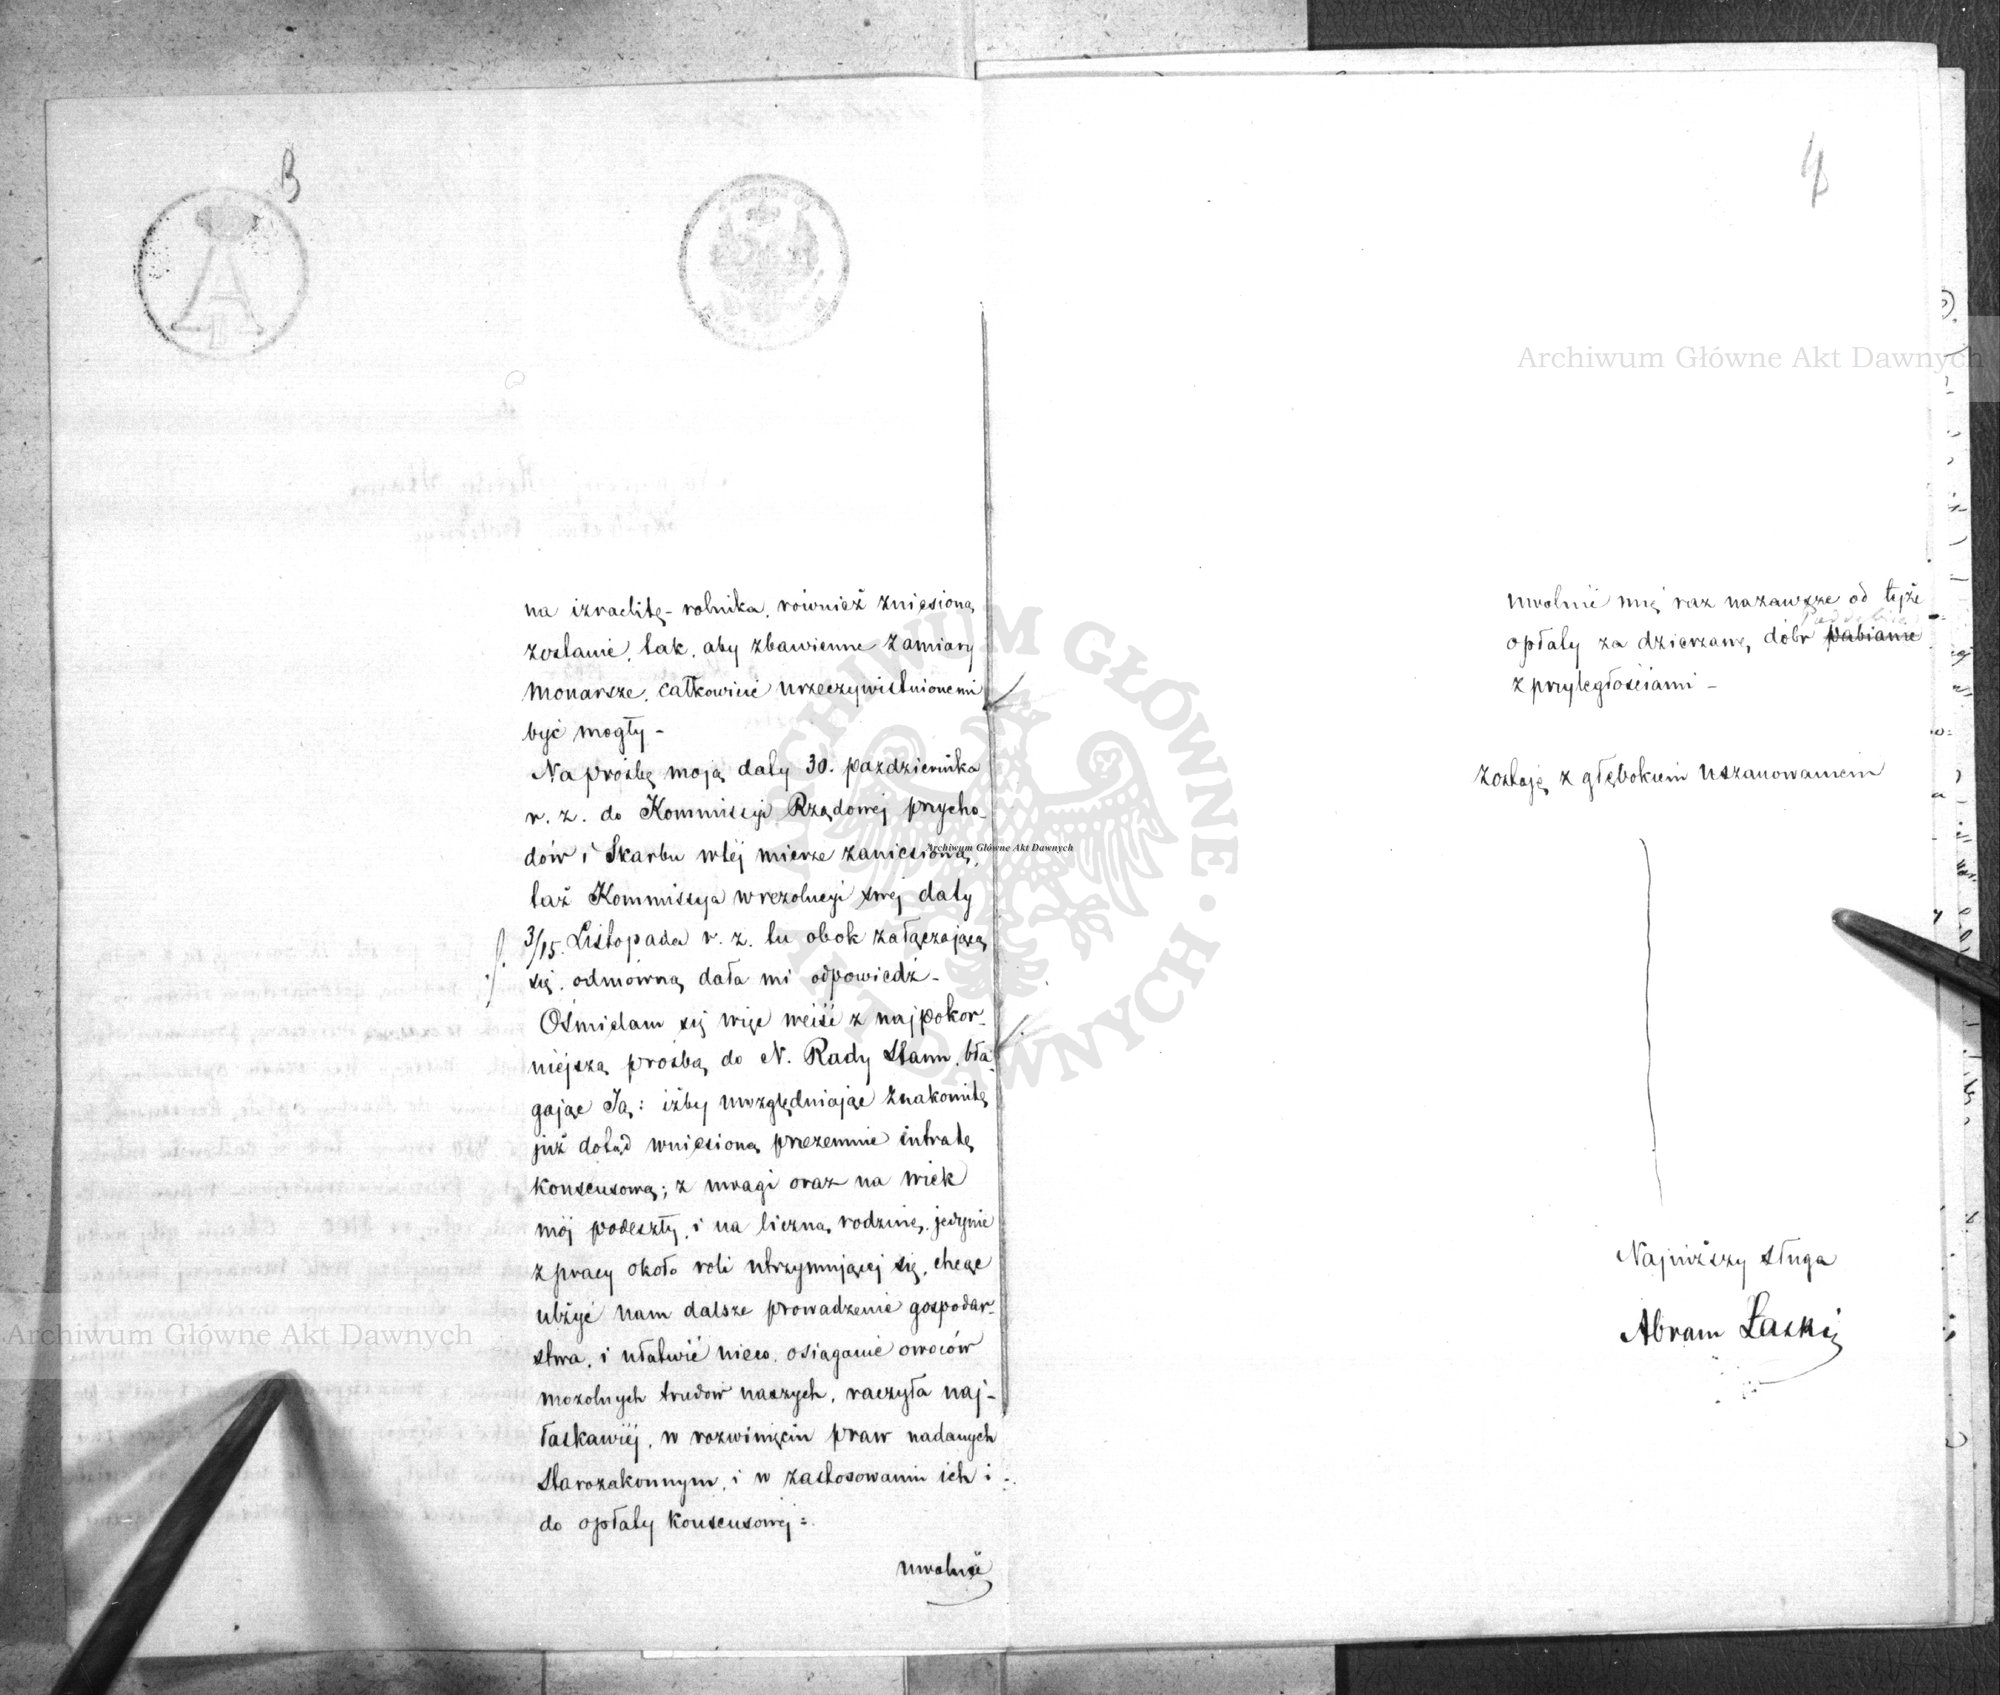 3
na izraelitę-rolnika, również zniesioną
zostanie, tak, aby zbawienne zamiary
Monarsze, całkowicie urzeczywistnionemi
być mogły –
Na prośbę moją daty 30. października
r. z. do Kommissyi Rządowej przycho-
dów i Skarbu w tej mierze zaniesioną,
taż Kommissya w rezolucyi swej daty
3/15. Listopada r. z. tu obok załączającą
się, odmówną dała mi odpowiedź –
Ośmielam się więc wejść z najpokor-
niejszą prośbą do N. Rady Stanu, bła-
gając Ją: iżby uwzględniając znakomitę
już dotąd wniesioną przezemnie intratę
konsensową; z uwagi oraz na wiek
mój podeszły, i na liczną rodzinę, jedynie
z pracy około roli utrzymującej się, chcąc
ulżyć nam dalsze prowadzenie gospodar-
stwa, i ułatwić nieco, osiąganie owoców
mozolnych trudów naszych, raczyła naj-
łaskawiej, w rozwinięciu praw nadanych
Starozakonnym, i w zastosowaniu ich i
do opłaty konsensowej =
uwolnić
4
uwolnić mię raz nazawsze od tejże
opłaty za dzierzawę dóbr pabianie
z przyległościami –
Zostaję z głębokiem uszanowaniem
Najniższy sługa
Abram Łaski
Archiwum Główne Akt Dawnych
Archiwum Główne Akt Dawnych
Archiwum Główne Akt Dawnych
ARCHIWUM GŁÓWNE AKT DAWNYCH